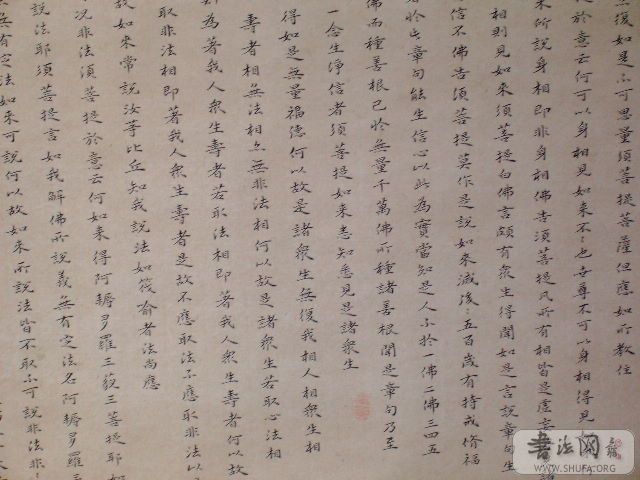 復如是不可思量須菩提菩薩但應如所教住
提於意云何可以身相見如来不〻也世尊不可以身相得見
来所說身相即非身相佛告須菩提凡所有相皆是虛妄
相則見如来須菩提白佛言頗有衆生得聞如是言說章句生
信不佛告須菩提莫作是說如来滅後〻五百歲有持戒修福
者於此章句能生信心以此為實當知是人不於一佛二佛三四五
佛而種善根已於無量千萬佛所種諸善根聞是章句乃至
一念生淨信者須菩提如来悉知悉見是諸衆生
得如是無量福德何以故是諸衆生無復我相人相衆生相
壽者相無法相亦無非法相何以故是諸衆生若取心相
即為著我人衆生壽者若取法相即著我人衆生壽者何以故
取非法相即著我人衆生壽者是故不應取法不應取非法以
故如来常說汝等比丘知我說法如筏喻者法尚應
況非法須菩提於意云何如来得阿耨多羅三藐三菩提耶如
說法耶須菩提言如我解佛所說義無有定法名阿耨多羅三
無有定法如来可說何以故如来所說法皆不取不可說非法非〻
書法网
WWW.SHUFA.ORG